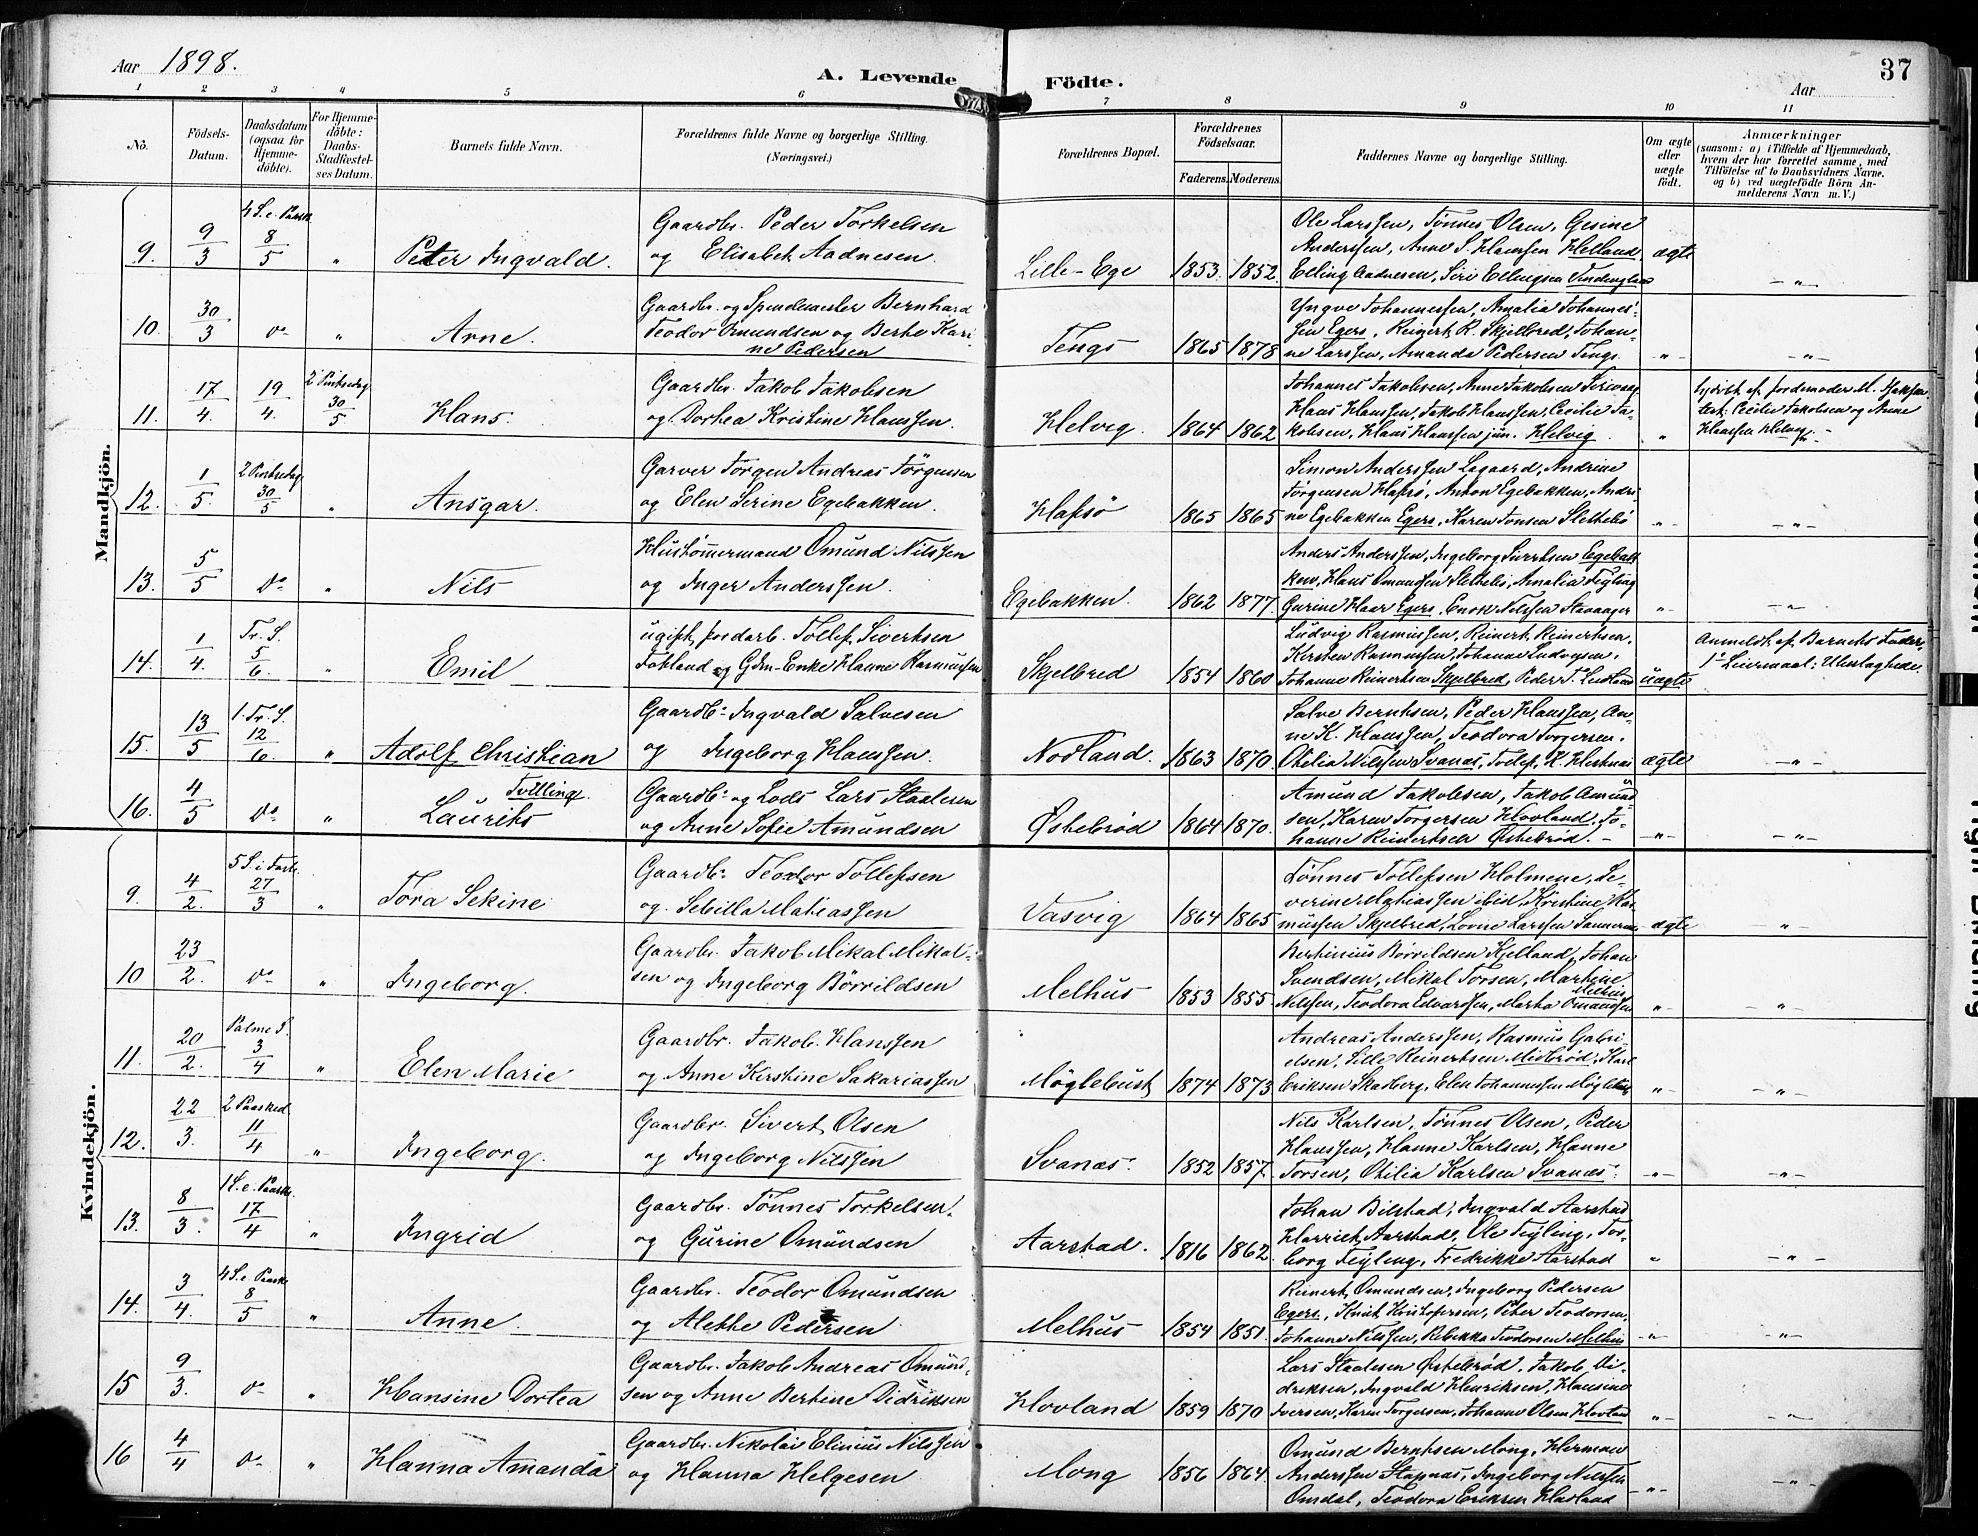 Aar 1898.
A. Levende Födte.
37
Aar
1 2 3 4 5 6 7 8 9 10 11
No.
Födsels-Datum.
Daabsdatum (ogsaa for Hjemme-döbte).
For Hjemme-döbte: Daabs-Stadfæstel-ses Datum.
Barnets fulde Navn.
Forældrenes fulde Navne og borgerlige Stilling. (Næringsvei.)
Forældrenes Bopæl.
Forældrenes Födselsaar.
Faderens. Moderens.
Faddernes Navne og borgerlige Stilling.
Om ægte eller uægte födt.
Anmærkninger
(saasom: a) i Tilfælde af Hjemmedaab, hvem der har forrettet samme, med Tilföielse af to Daabsvidners Navne. og b) ved uægtefödte Börn An-melderens Navn m. V.)
Mandkjön.
9. 9/3 4 S. e. Paaske 8/5 " Peter Ingvald. Gaardbr. Peder Torkelsen
og Elisabet Aadnesen. Lille-Ege 1853. 1852. Ole Larssen, Tönnes Olsen, Gesine
Anderssen, Anne S. Hanssen Hetland, ægte
Elling Aadnesen, Siri Ellingsen -"-
10. 30/3 do " Arne. Gaardbr. og Spendemester Bernhard
Teodor Omundsen og Berte Kari-
ne Pedersen Tengs 1865 1878 Yngve Johannessen, Amalia Johannes-
sen Egers., Reinert R. Skjelbred, Johan-
ne Larssen, Amanda Pedersen Tengs. -"- -"-
11. 17/4 19/4. 2 Pintsedag 30/5 Hans. Gaardbr. Jakob Jakobsen
og Dortea Kristine Hanssen. Helvig. 1864 1862 Johannes Jakobsen, Anne Jakobsen
Hans Hanssen, Jakob Hanssen, Cecilie Ja-
kobsen, Hans Hanssen jun. Helvig. " Hjdöbt af Jordemoder M.
test: Cecilie Jakobsen og Anne
Hanssen Helvig. -
12. 1/5 2 Pintsedag 30/5 " Ansgar. Garver Jörgen Andreas Jörgensen
og Elen Serine Egebakken. Hafsö 1865 1865 Simon Anderssen Lagaard, Andrine
Jörgensen Hafsö, Anton Egebakken, Andri-
ne Egebakken Egers., Karen Tonsen Slettebö -"- -"-
13. 5/5 do " Nils Hustömmermand Omund Nilssen
og Inger Anderssen. Egebakken. 1862 1877 Anders Anderssen, Ingeborg Sivertsen Egebak-
ken, Hans Omundsen Slettebö, Amalia Tegling
Gurine Haar Egers., Enok Nilssen Stavanger -"- -"-
14. 1/4. Tr. S. 5/6. " Emil ugift, jordarb. Tollef Sivertsen
og Gdm-Enke Hanne Rasmussen Skjelbred 1854 1860 Ludvig Rasmussen, Reinert Reinertsen,
Kirsten Rasmussen, Johanne Ludvigsen,
Johanne Reinertsen Skjelbred, Peder T. uægte Anmeldt af Barnets Fader,
1ste Leiermaal; Ubeslægtede
15. 13/5 1. Tr. S. 12/6. " Adolf Christian Gaardbr. Ingvald Salvesen
og Ingeborg Hanssen. Nodland. 1863 1870. Salve Berntsen, Peder Hanssen, An-
ne K. Hanssen, Teodora Torgersen,
Otilia Nilssen Svanæs, Tollef K. Hestnæs ægte -"-
16. 4/5 do " Tvilling. Laurits Gaardbr. og Lods Lars Staalesen
og Anne Sofie Amundsen Östebröd 1864 1870. Amund Jakobsen, Jakob Amund-
sen, Karen Torgersen Hovland, Jo-
hanne Reinertsen Östebröd. - -"- -"-
Kvindekjön.
9. 4/2. 5 S. i Faste 27/3 " Tora Sekine Gaardbr. Teodor Tollefsen
og Sebilla Matiassen Vasvig 1864 1865 Tönnes Tollefsen Holmene, Se-
verine Matiassen ibid, Kristine Ras-
mussen Skjelbred, Lovise Larssen ægte "
10 23/2. do " Ingeborg. Gaardbr. Jakob Mikal Mikal-
sen og Ingeborg Börrildsen Melhus 1853 1855. Bertinius Börrildsen Kjelland, Johan
Svendsen, Mikal Torsen, Martine
Nilssen, Teodora Edvardsen, Marta Omundsen Melhus -"- "
11. 20/2. Palme S. 3/4 " Elen Marie Gaardbr. Jakob Hanssen
og Anne Kirstine Sakariassen Möglebust 1874 1873 Andreas Anderssen, Rasmus Gabri-
elsen, Sille Reinertsen Midbröd, Karl
Eriksen Skadberg, Elen Johannessen Möglebust -"- -"-
12. 22/3. 2 Paasked. 11/4 " Ingeborg. Gaardbr. Sivert Olsen
og Ingeborg Nilssen Svanæs. 1852 1857. Nils Karlsen, Tönnes Olsen, Peder
Hanssen, Hanne Karlsen, Hanne
Torsen, Otilia Karlsen Svanæs. -"- -"-
13. 8/3. 1 S. e. Paaske 17/4 " Ingrid Gaardbr. Tönnes Torkelsen
og Gurine Omundsen Aarstad. 1816 1862. Johan Bilstad, Ingvald Aarstad
Harriet Aarstad, Ole Tegling, Tor-
borg Tegling, Fredrikke Aarstad " -"-
14. 3/4 4 S. e. Paaske 8/5 " Anne. Gaardbr. Teodor Omundsen
og Alette Pedersen Melhus 1854 1851. Reinert Omundsen, Ingeborg Pedersen
Egers., Knut Kristofersen, Peter Teodorsen,
Johanne Nilssen, Rebekka Teodorsen Melhus -"- -"-
15 9/3. do " Hansine Dortea Gaardbr. Jakob Andreas Omund-
sen og Anne Bertine Didriksen Hovland 1859 1870 Lars Staalesen Östebröd, Jakob Di-
driksen, Ingvald Henriksen, Hansine
Iversen, Karen Torgersen, Johanne Olsen Hovland -"- -"-
16 4/4 do " Hanna Amanda Gaardbr. Nikolai Elinius Nilssen
og Hanna Helgesen Mong 1856 1864. Omund Berntsen Mong, Herman
Anderssen Stapnæs, Ingeborg Nilssen
Omdal, Teodora Eriksen Hadland -"- -"-